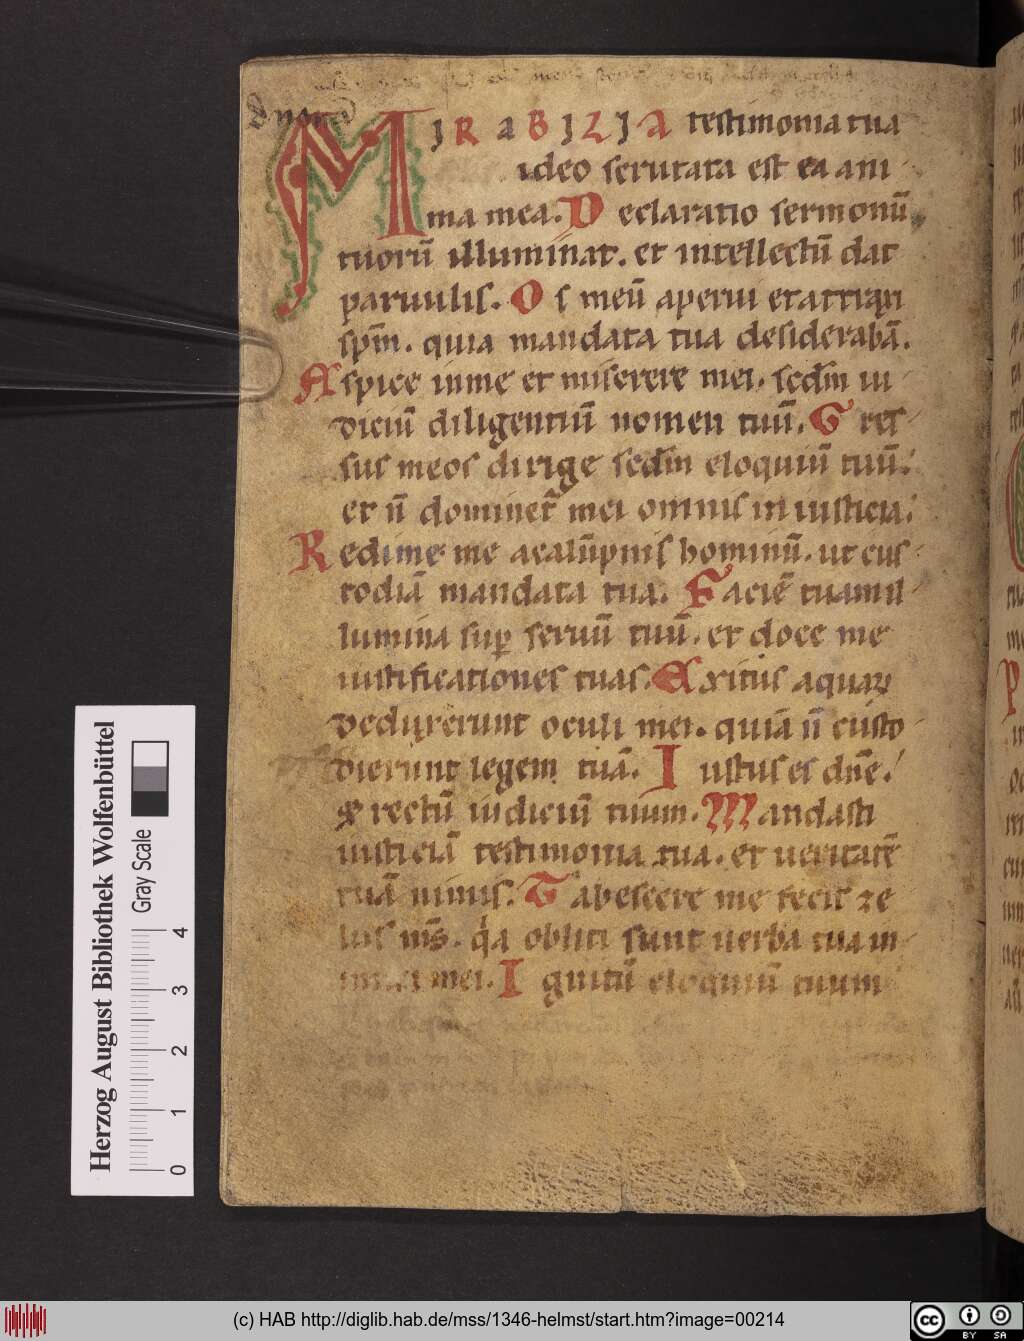 MIRABILIA testimonia tua
ideo scrutata est ea ani
ma mea. Declaratio sermonū
tuorū illuminat. et intellectū dat
paruulis. Os meū aperui et attraxi
spm̄. quia mandata tua desiderabā.
Aspice in me et miserere mei. scdm̄ iu
diciū diligentiū nomen tuū. Gres
sus meos dirige scdm̄ eloquiū tuū.
et n̄ dominet̄ mei omnis iniusticia.
Redime me a calūpniis hominū. ut cus
todiā mandata tua. Faciē tuam il
lumina sup seruū tuū. et doce me
iustificationes tuas. Exitus aquaꝝ
deduxerunt oculi mei. quia n̄ custo
dierunt legem tuā. Iustus es dn̄e.
& rectū iudiciū tuum. Mandasti
iusticiā testimonia tua. et ueritatē
tuā nimis. Tabescere me fecit ze
lus ms̄. qa obliti sunt uerba tua in
imici mei. Ignitū eloquiū tuum
Herzog August Bibliothek Wolfenbüttel
Gray Scale
0 1 2 3 4
(c) HAB http://diglib.hab.de/mss/1346-helmst/start.htm?image=00214
cc BY SA